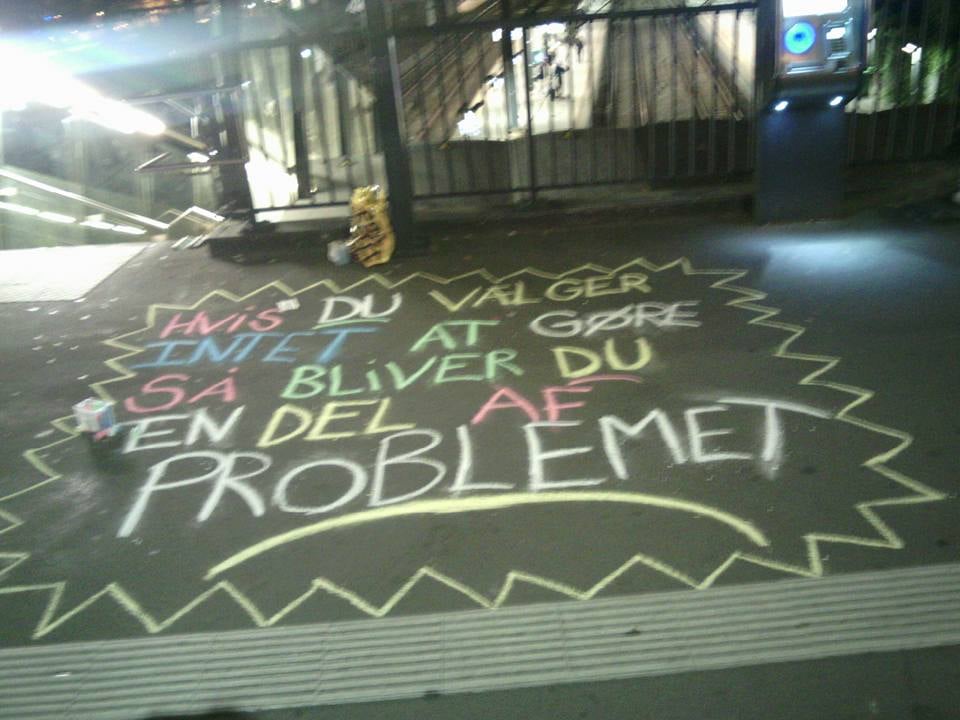 HVIS DU VÆLGER
INTET AT GØRE
SÅ BLIVER DU
EN DEL AF
PROBLEMET